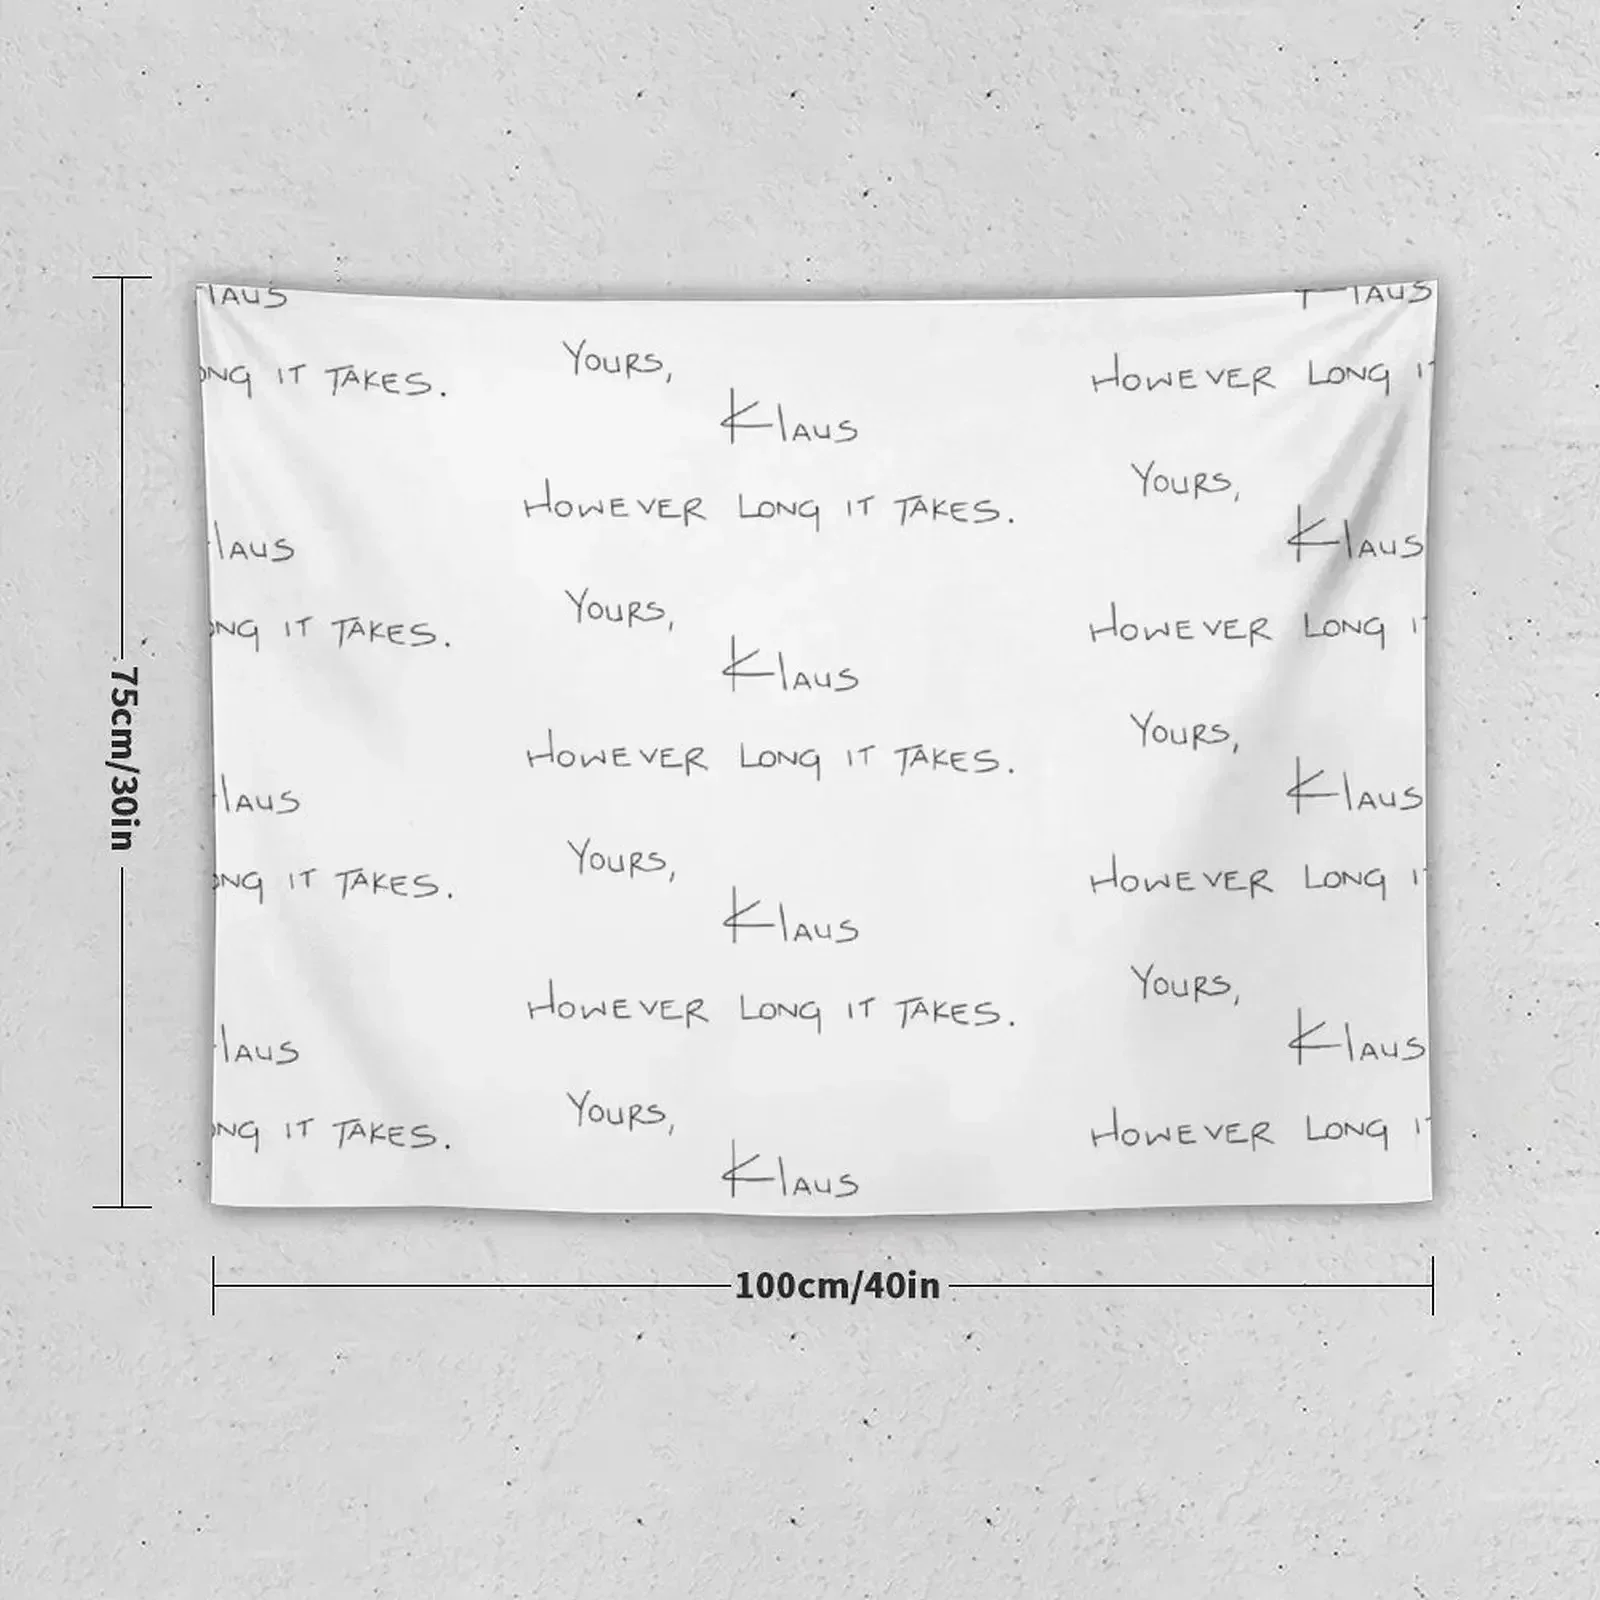 LAUS
LAUS
ONG IT TAKES.
YOURS,
HOWEVER LONG IT
KLAUS
YOURS,
HOWEVER LONG IT TAKES.
KLAUS
LAUS
YOURS,
ONG IT TAKES.
HOWEVER LONG IT
KLAUS
YOURS,
HOWEVER LONG IT TAKES.
KLAUS
LAUS
YOURS,
ONG IT TAKES.
HOWEVER LONG I
KLAUS
YOURS,
HOWEVER LONG IT TAKES.
KLAUS
LAUS
YOURS,
ONG IT TAKES.
HOWEVER LONG IT
KLAUS
75cm/30in
100cm/40in